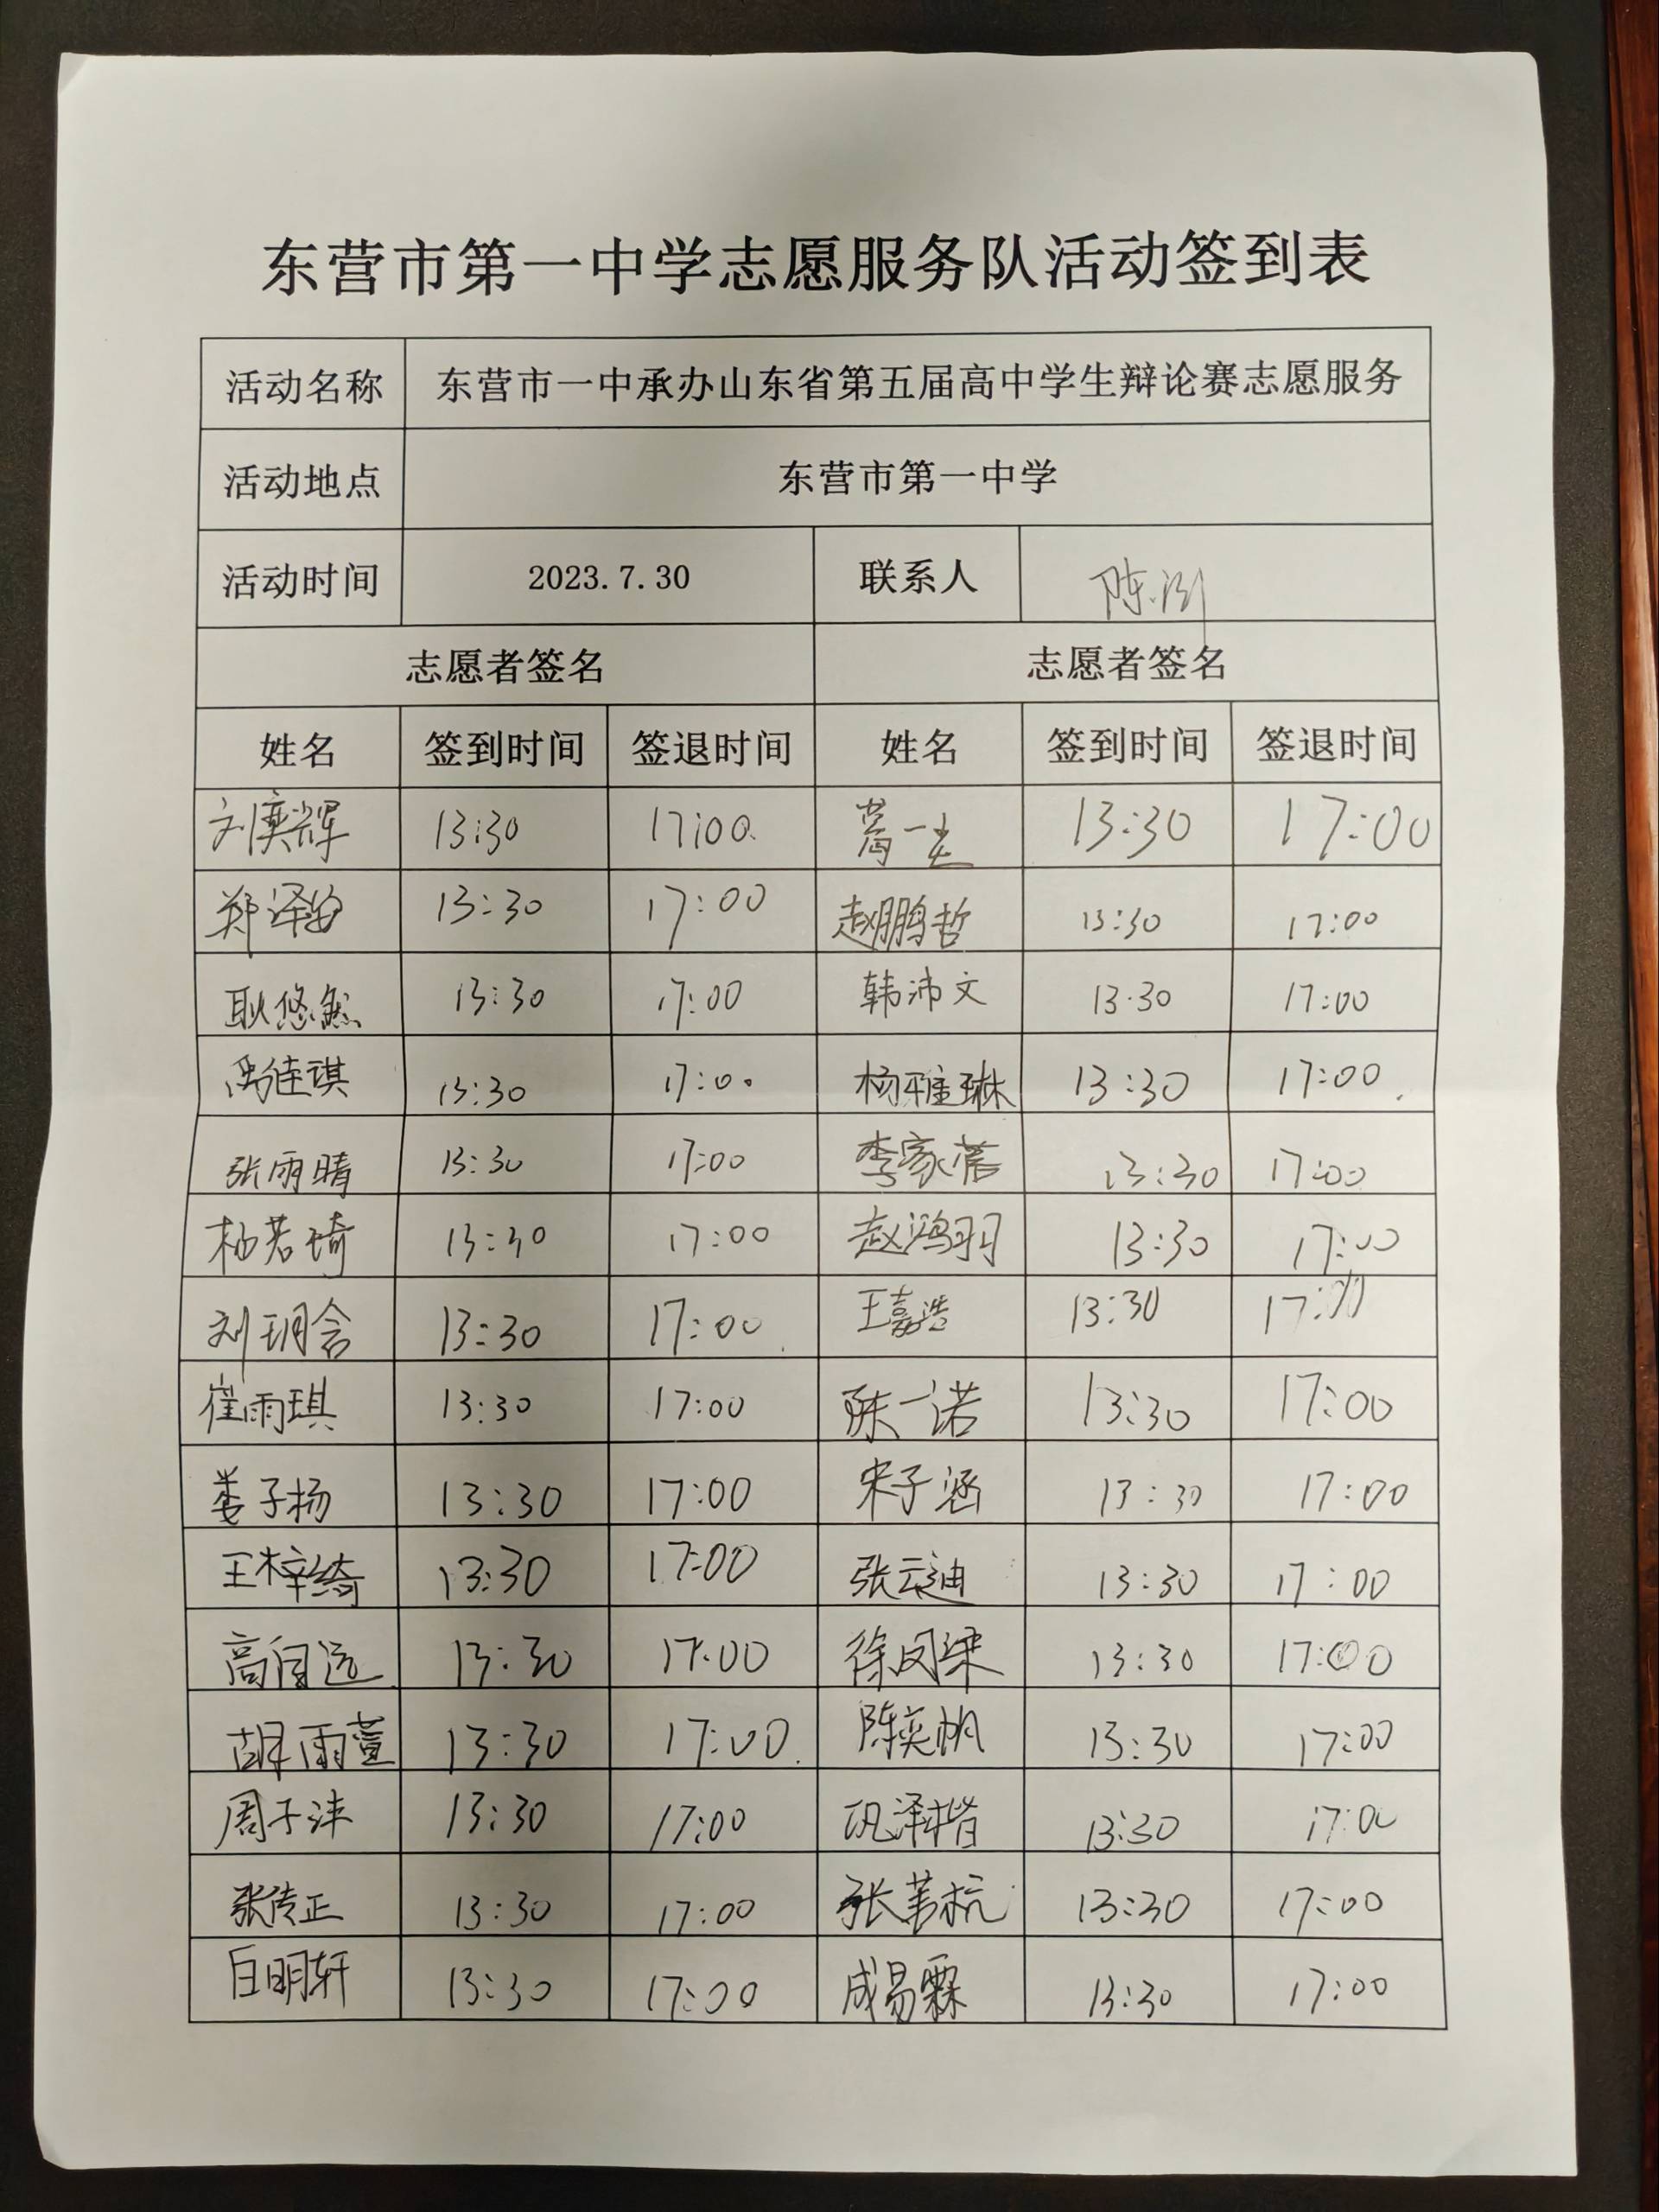 东营市第一中学志愿服务队活动签到表
活动名称 东营市一中承办山东省第五届高中学生辩论赛志愿服务
活动地点 东营市第一中学
活动时间 2023.7.30 联系人 陈
志愿者签名 志愿者签名
姓名 签到时间 签退时间 姓名 签到时间 签退时间
刘奕辉 13:30 17:00 葛一 13:30 17:00
郑泽安 13:30 17:00 赵鹏哲 13:30 17:00
耿悠然 13:30 17:00 韩沛文 13:30 17:00
禹佳琪 13:30 17:00 杨雅琳 13:30 17:00
张雨晴 13:30 17:00 李家蓓 13:30 17:00
杨若琦 13:30 17:00 赵鸿羽 13:30 17:00
刘玥含 13:30 17:00 王嘉浩 13:30 17:00
崔雨琪 13:30 17:00 陈一诺 13:30 17:00
娄子扬 13:30 17:00 宋子涵 13:30 17:00
王梓绮 13:30 17:00 张云迪 13:30 17:00
高闻远 13:30 17:00 徐凤梁 13:30 17:00
胡雨萱 13:30 17:00 陈奕帆 13:30 17:00
周子沣 13:30 17:00 巩泽楷 13:30 17:00
张传正 13:30 17:00 张苇杭 13:30 17:00
白明轩 13:30 17:00 成易霖 13:30 17:00